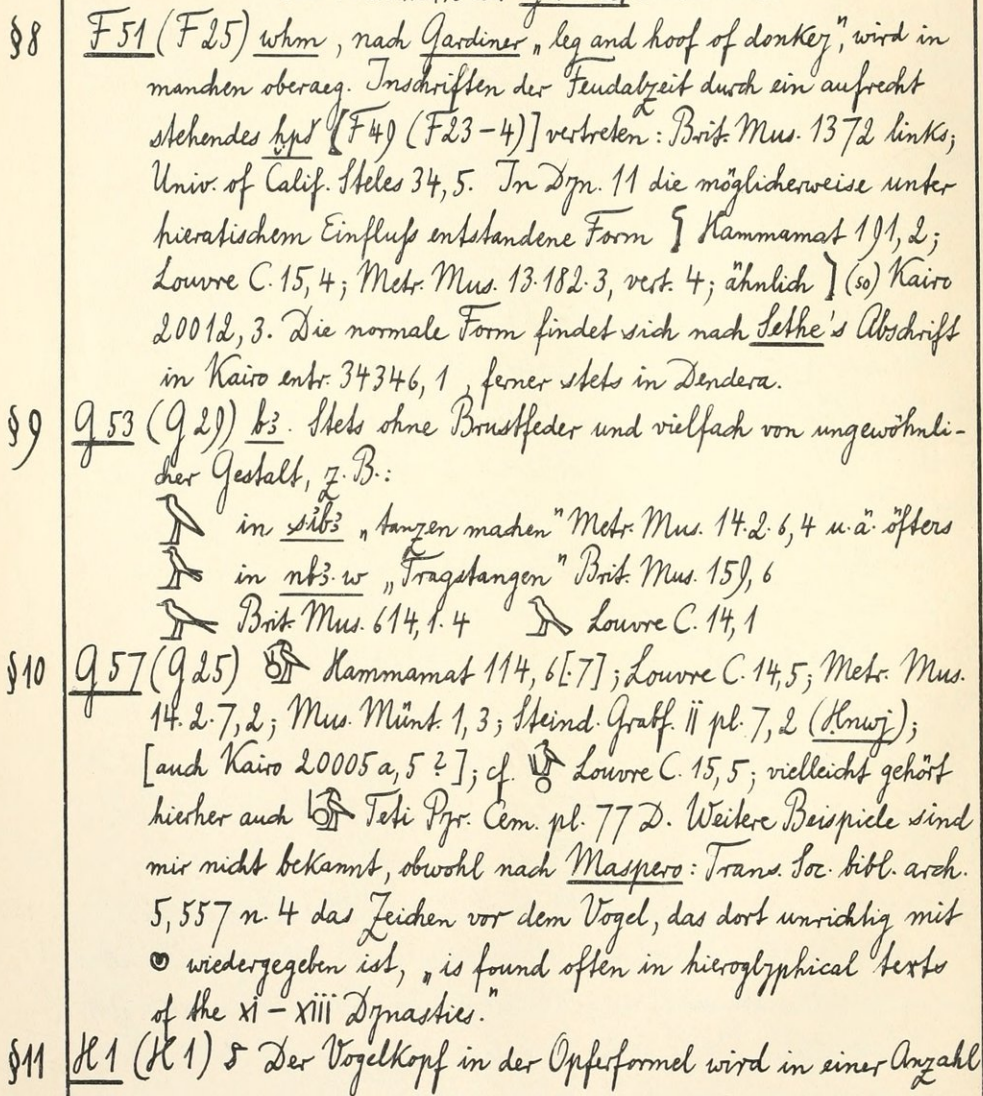 §8 F51 (F25) wḥm, nach Gardiner „leg and hoof of donkey", wird in
manchen oberaeg. Inschriften der Feudalzeit durch ein aufrecht
stehendes ḫpš [F49 (F23-4)] vertreten: Brit. Mus. 1372 links;
Univ. of Calif. Steles 34,5. In Dyn. 11 die möglicherweise unter
hieratischem Einfluß entstandene Form Hammamat 191, 2;
Louvre C. 15, 4; Metr. Mus. 13.182.3, vert. 4; ähnlich (so) Kairo
20012, 3. Die normale Form findet sich nach Sethe's Abschrift
in Kairo entr. 34346, 1, ferner stets in Dendera.
§9 G53 (G29) bꜣ. Stets ohne Brustfeder und vielfach von ungewöhnli-
cher Gestalt, z. B.:
in sı͗bꜣ „tanzen machen" Metr. Mus. 14.2.6, 4 u. ä. öfters
in nbꜣ.w „Tragstangen" Brit. Mus. 159, 6
Brit. Mus. 614, 1.4 Louvre C. 14, 1
§10 G57 (G25) Hammamat 114, 6[.7]; Louvre C. 14,5; Metr. Mus.
14.2.7,2; Mus. Münt. 1, 3; Steind. Grabf. ii pl. 7, 2 (Ḥnwj);
[auch Kairo 20005 a, 5 ?]; cf. Louvre C. 15, 5; vielleicht gehört
hierher auch Teti Pyr. Cem. pl. 77 D. Weitere Beispiele sind
mir nicht bekannt, obwohl nach Maspero: Trans. Soc. bibl. arch.
5, 557 n. 4 das Zeichen vor dem Vogel, das dort unrichtig mit
wiedergegeben ist, „is found often in hieroglyphical texts
of the xi – xiii Dynasties."
§11 H1 (H1) Der Vogelkopf in der Opferformel wird in einer Anzahl